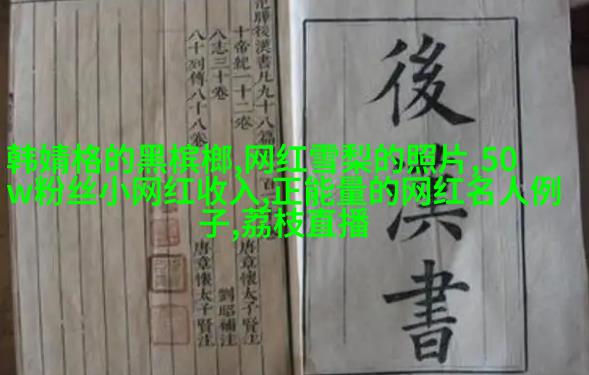 韩婧格的黑槟榔,网红雪梨的照片,50
w粉丝小网红收入,正能量的网红名人例
子,荔枝直播
後漢書
後漢書凡九十八篇
十帝紀一十二卷 唐章懷太子賢注
八志三十卷 劉昭補注
八十列傳八十八卷 唐章懷太子賢注